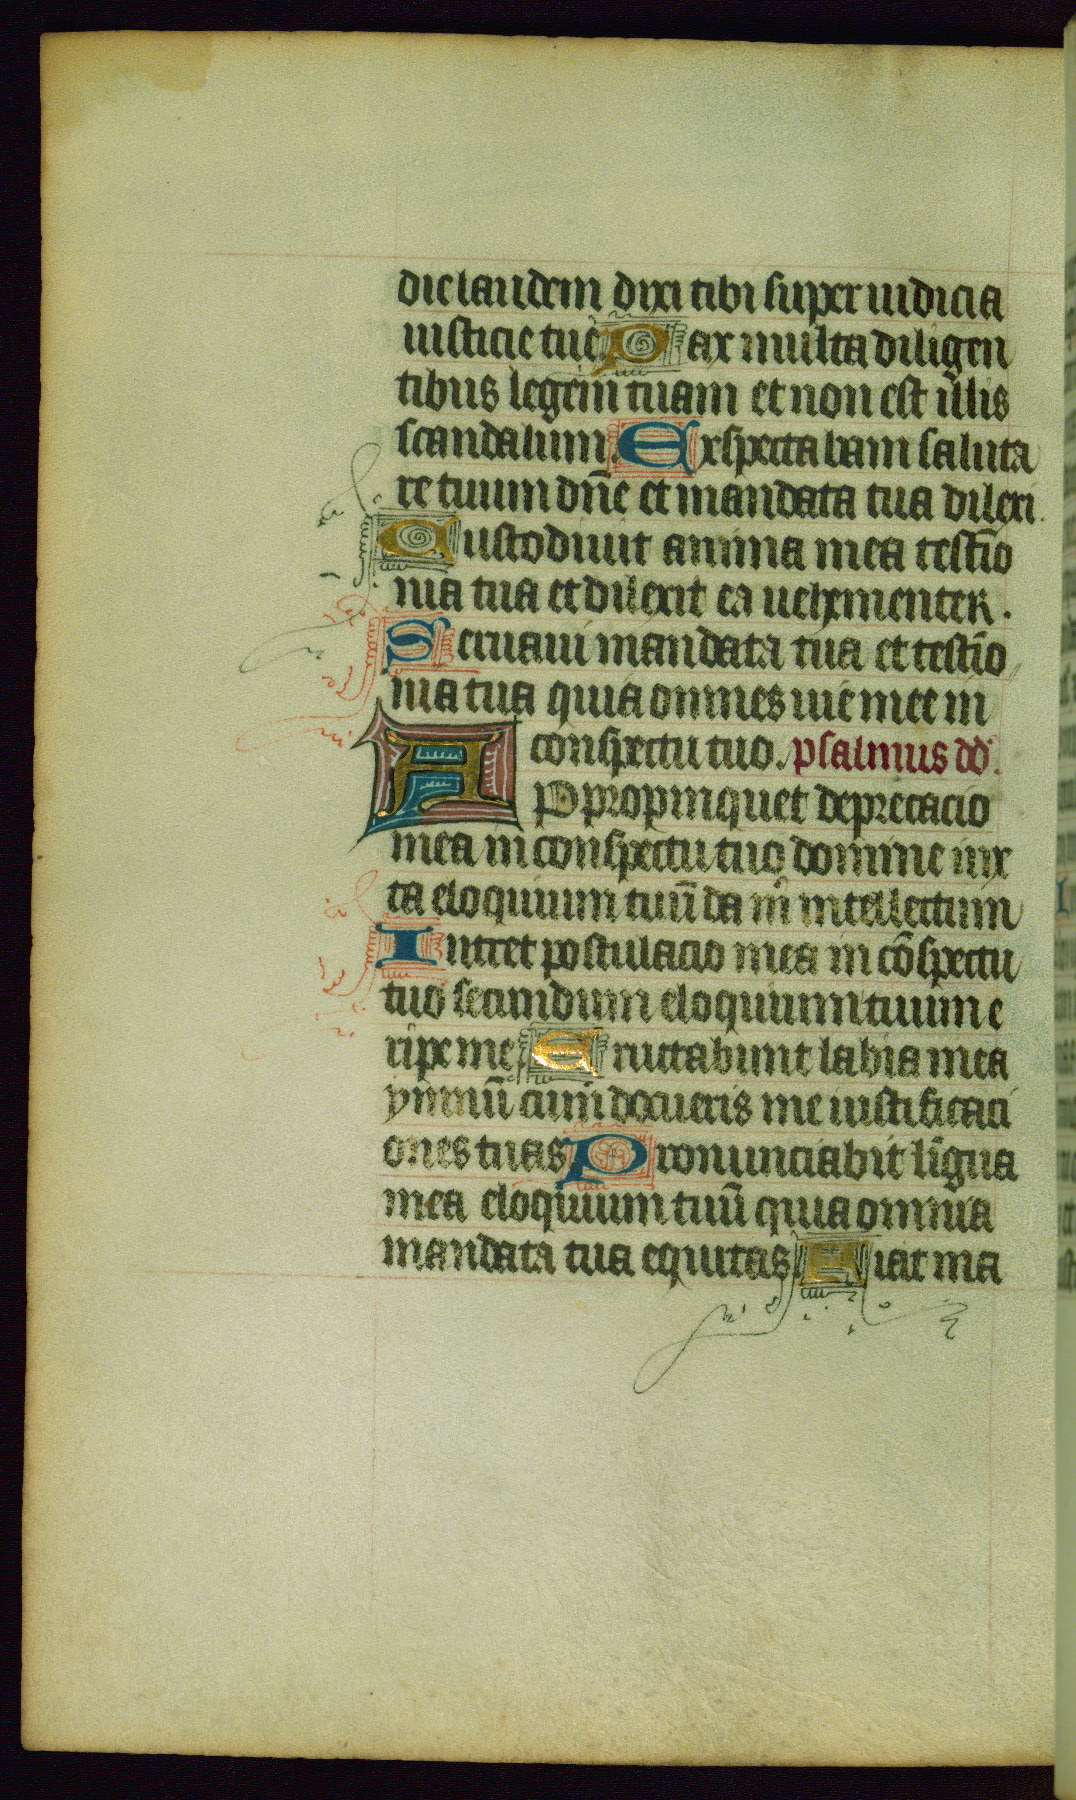 die laudem dixi tibi super iudicia
iusticie tue. Pax multa diligen
tibus legem tuam et non est illis
scandalum. Exspectabam saluta
re tuum dn̄e et mandata tua dilexi.
Custodiuit anima mea testīo
nia tua et dilexit ea uehementer.
Seruaui mandata tua et testīo
nia tua quia omnes uie mee in
conspectu tuo. psalmus dd.
APpropinquet deprecacio
mea in conspectu tuo domine iux
ta eloquium tuū da m̊ intellectum
Intret postulacio mea in cōspectu
tuo secundum eloquium tuum e
ripe me. Eructabunt labia mea
ymnū cum docueris me iustificaci
ones tuas. Pronunciabit līgua
mea eloquium tuū quia omnia
mandata tua equitas. Fiat ma